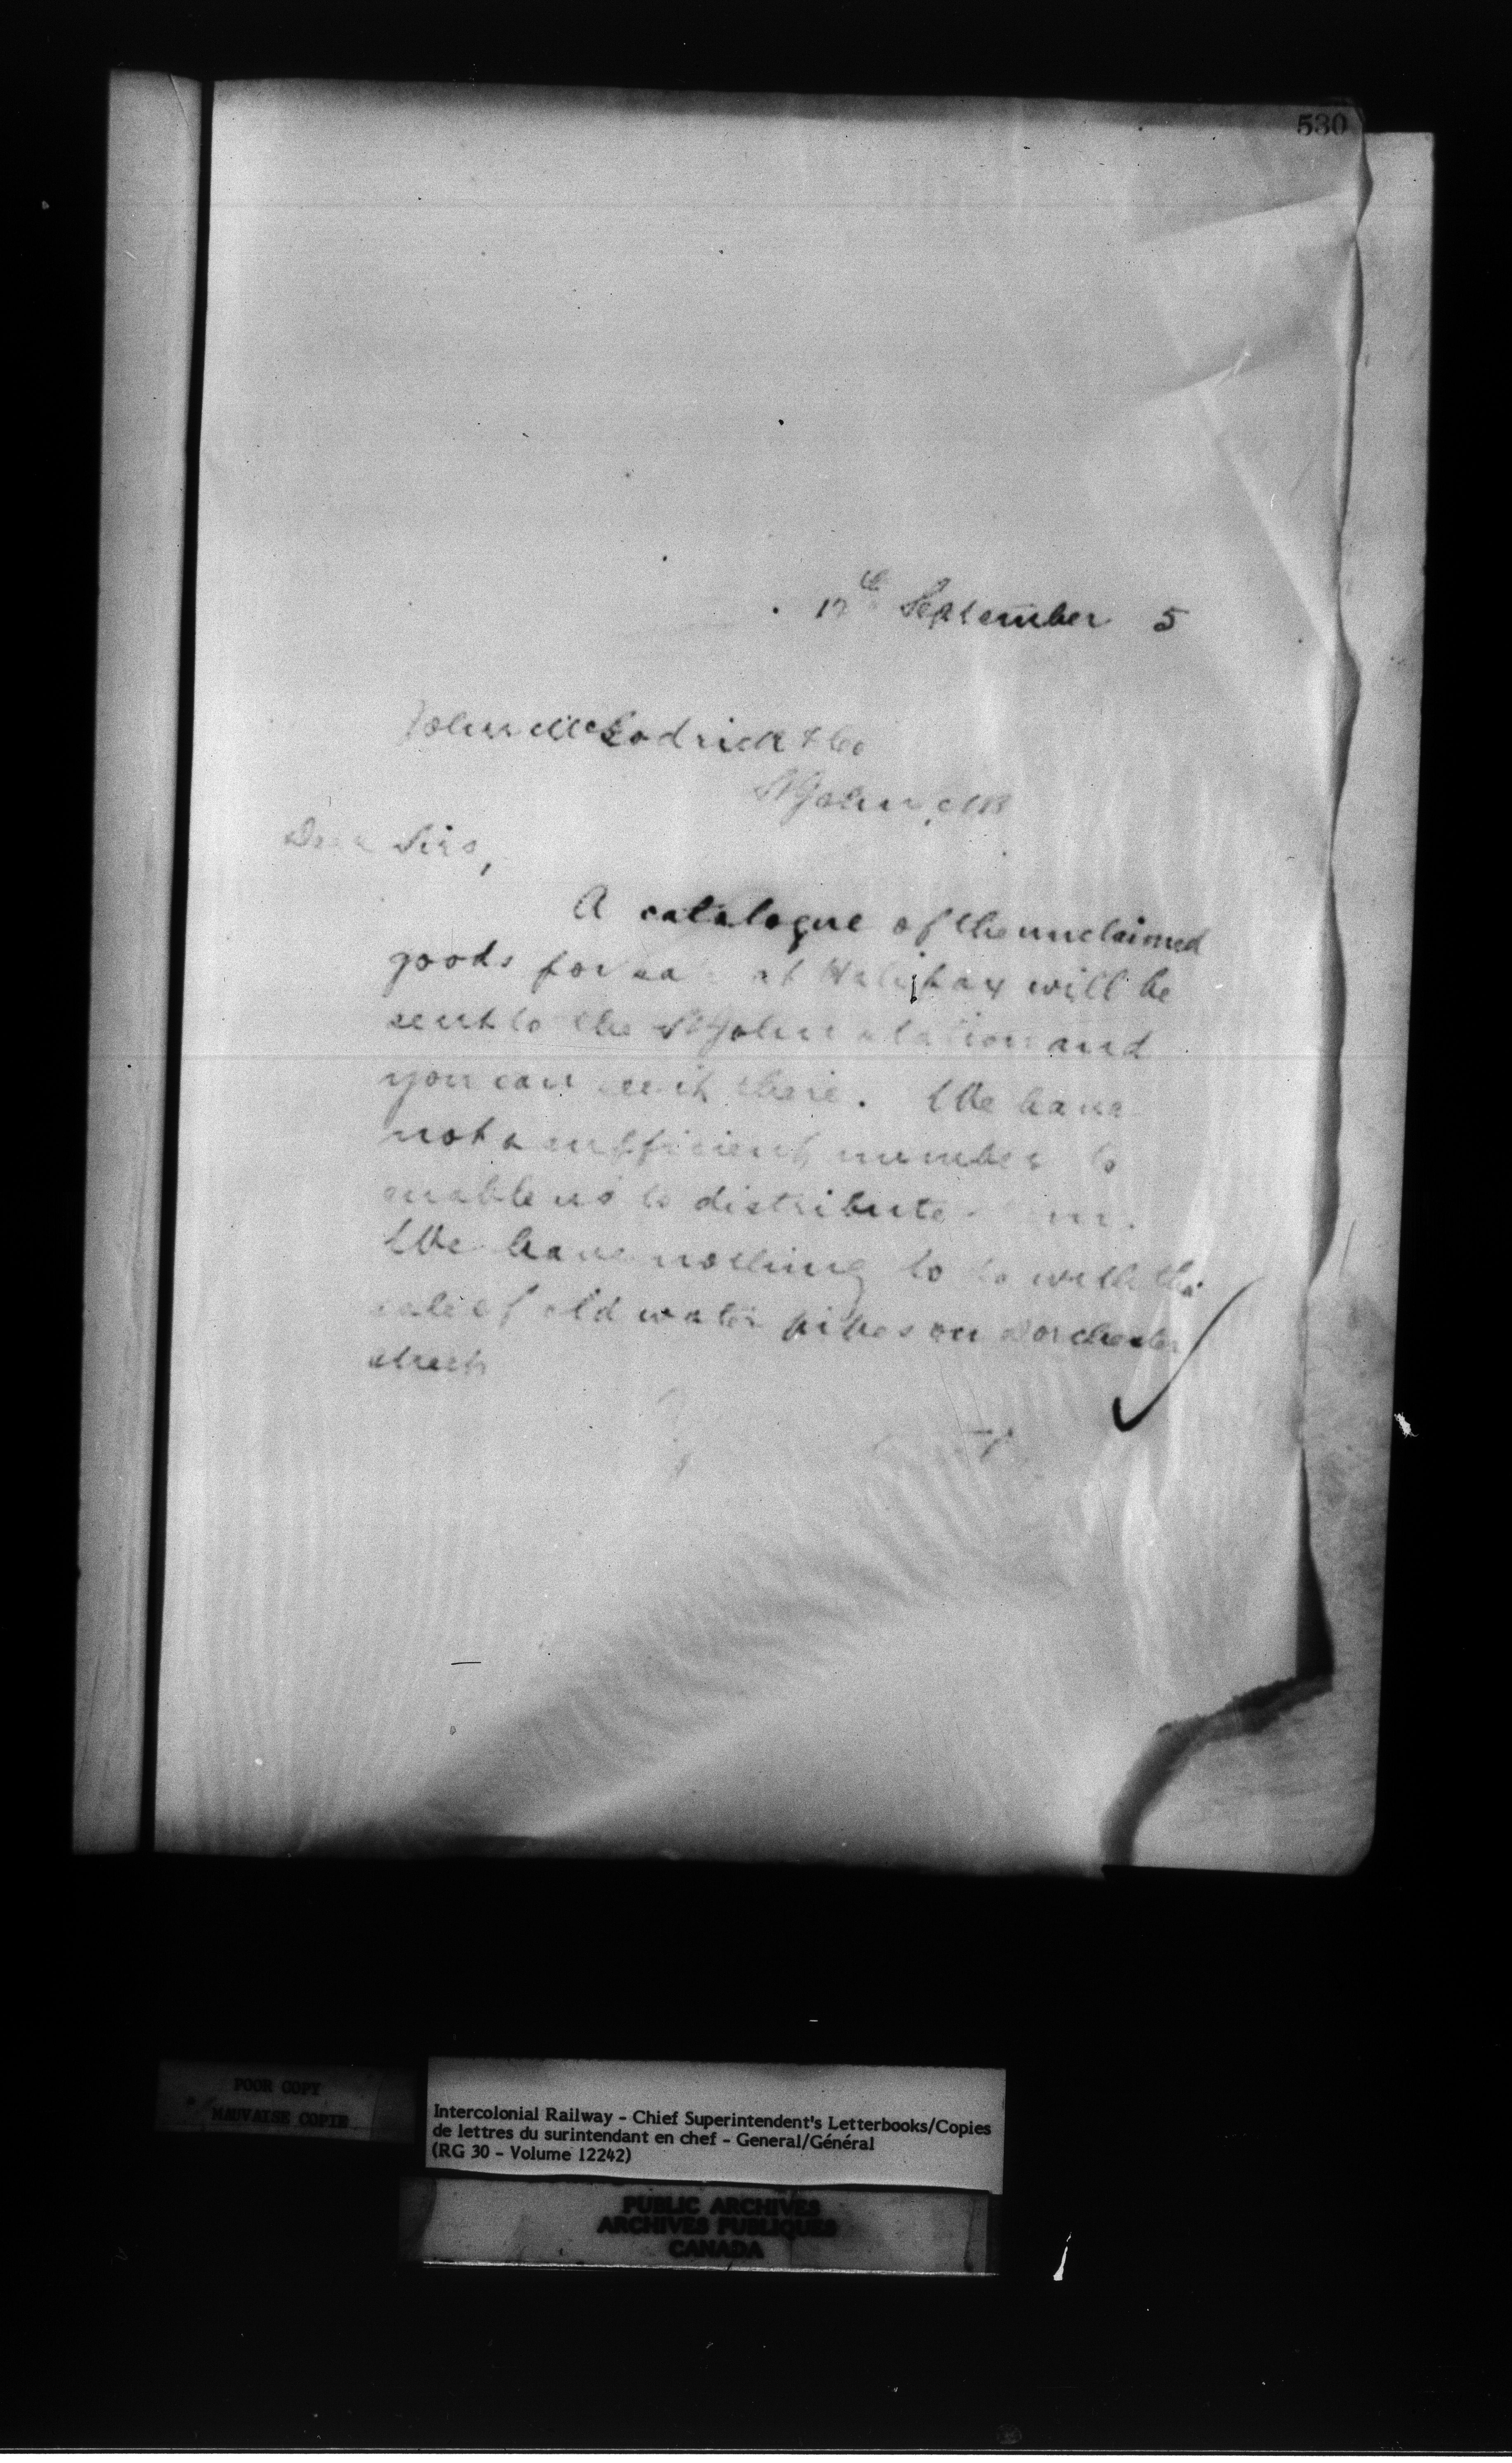 530
17th September 5
John McGodrick & Co
St John, NB
Dear Sirs,
A catalogue of the unclaimed
goods for sale at Halifax will be
sent to the St John station and
you can see it there. We have
not a sufficient number to
enable us to distribute them.
We have nothing to do with the
sale of old water pipes on Dorchester
street
POOR COPY
MAUVAISE COPIE
Intercolonial Railway - Chief Superintendent's Letterbooks/Copies
de lettres du surintendant en chef - General/Général
(RG 30 - Volume 12242)
PUBLIC ARCHIVES
ARCHIVES PUBLIQUES
CANADA